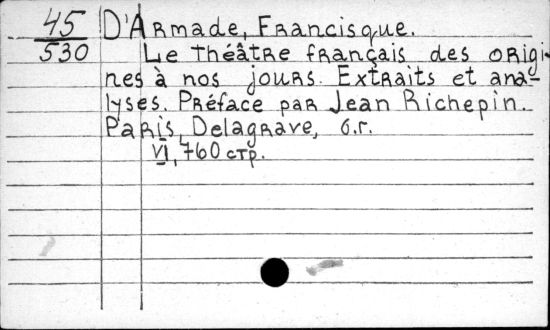 45
530
D'Armade, Francisque.
Le théâtre français des origi-
nes à nos jours. Extraits et ana-
lyses. Préface par Jean Richepin.
Paris, Delagrave, б.г.
VI, 760 стр.